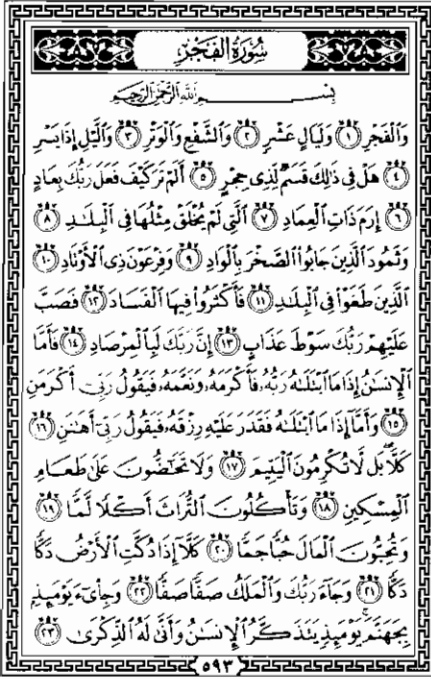 سُورَةُ الفَجْرِ
بِسْمِ ٱللَّهِ ٱلرَّحْمَٰنِ ٱلرَّحِيمِ
وَٱلْفَجْرِ ١ وَلَيَالٍ عَشْرٍ ٢ وَٱلشَّفْعِ وَٱلْوَتْرِ ٣ وَٱلَّيْلِ إِذَا يَسْرِ
٤ هَلْ فِى ذَٰلِكَ قَسَمٌ لِّذِى حِجْرٍ ٥ أَلَمْ تَرَ كَيْفَ فَعَلَ رَبُّكَ بِعَادٍ
٦ إِرَمَ ذَاتِ ٱلْعِمَادِ ٧ ٱلَّتِى لَمْ يُخْلَقْ مِثْلُهَا فِى ٱلْبِلَٰدِ ٨
وَثَمُودَ ٱلَّذِينَ جَابُوا۟ ٱلصَّخْرَ بِٱلْوَادِ ٩ وَفِرْعَوْنَ ذِى ٱلْأَوْتَادِ ١٠
ٱلَّذِينَ طَغَوْا۟ فِى ٱلْبِلَٰدِ ١١ فَأَكْثَرُوا۟ فِيهَا ٱلْفَسَادَ ١٢ فَصَبَّ
عَلَيْهِمْ رَبُّكَ سَوْطَ عَذَابٍ ١٣ إِنَّ رَبَّكَ لَبِٱلْمِرْصَادِ ١٤ فَأَمَّا
ٱلْإِنسَٰنُ إِذَا مَا ٱبْتَلَىٰهُ رَبُّهُۥ فَأَكْرَمَهُۥ وَنَعَّمَهُۥ فَيَقُولُ رَبِّىٓ أَكْرَمَنِ
١٥ وَأَمَّآ إِذَا مَا ٱبْتَلَىٰهُ فَقَدَرَ عَلَيْهِ رِزْقَهُۥ فَيَقُولُ رَبِّىٓ أَهَٰنَنِ ١٦
كَلَّا ۖ بَل لَّا تُكْرِمُونَ ٱلْيَتِيمَ ١٧ وَلَا تَحَٰٓضُّونَ عَلَىٰ طَعَامِ
ٱلْمِسْكِينِ ١٨ وَتَأْكُلُونَ ٱلتُّرَاثَ أَكْلًا لَّمًّا ١٩
وَتُحِبُّونَ ٱلْمَالَ حُبًّا جَمًّا ٢٠ كَلَّآ إِذَا دُكَّتِ ٱلْأَرْضُ دَكًّا
دَكًّا ٢١ وَجَآءَ رَبُّكَ وَٱلْمَلَكُ صَفًّا صَفًّا ٢٢ وَجِا۟ىٓءَ يَوْمَئِذٍۭ
بِجَهَنَّمَ ۚ يَوْمَئِذٍ يَتَذَكَّرُ ٱلْإِنسَٰنُ وَأَنَّىٰ لَهُ ٱلذِّكْرَىٰ ٢٣
٥٩٣